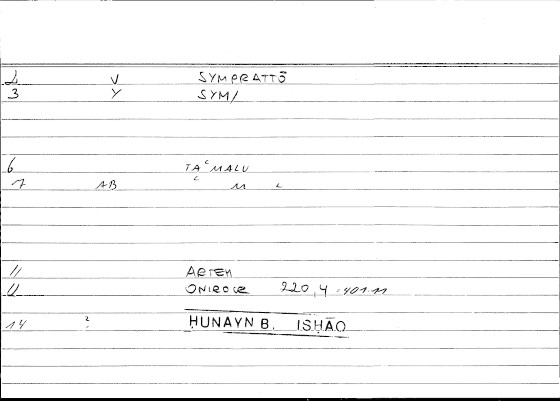 2 V SYMPRATTŌ
3 Y SYM/
6 TAʿMALU
7 AB ʿ M L
11 ARTEM
U ONIROCR 220,4 - 401.11
14 ? ḤUNAYN B. ISḤĀQ